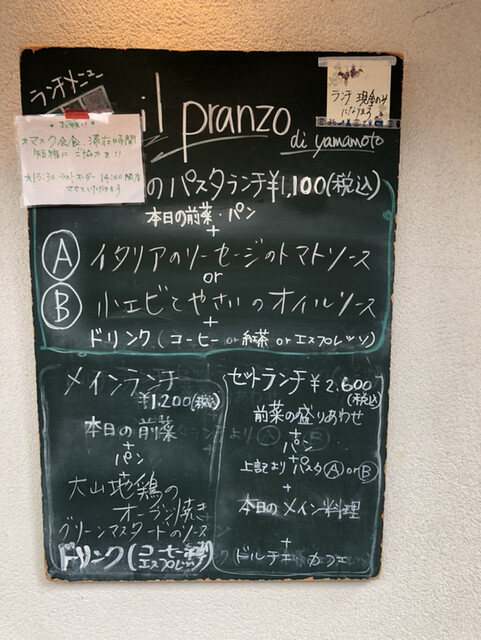 ランチメニュー
il pranzo
di yamamoto
ランチ 現金のみ
になります
お願い
マスク会食、滞在時間
短縮にご協力を!!
13:30 ラストオーダー 14:00 閉店
させていただきます
のパスタランチ ¥1,100(税込)
本日の前菜・パン
+
Ⓐ イタリアのソーセージのトマトソース
or
Ⓑ 小エビとやさいのオイルソース
+
ドリンク(コーヒー or 紅茶 or エスプレッソ)
メインランチ
¥1,200(税込)
本日の前菜
+
パン
+
大山地鶏の
オーブン焼き
グリーンマスタードのソース
ドリンク(コーヒー
エスプレッソ)
セットランチ ¥2,600
(税込)
前菜の盛りあわせ
+
パン
+
上記よりパスタ Ⓐ or Ⓑ
+
本日のメイン料理
+
ドルチェ・カフェ